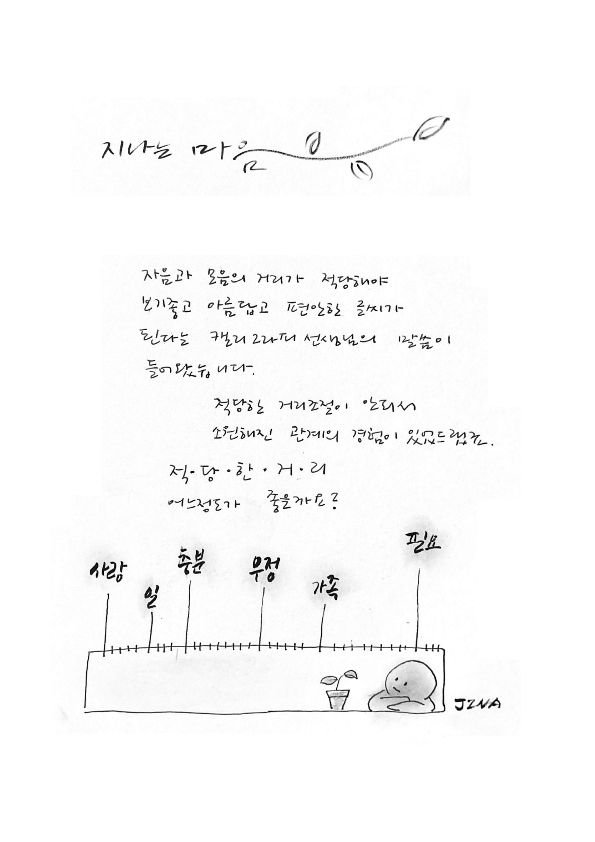 지나는 마음
자음과 모음의 거리가 적당해야
보기좋고 아름답고 편안한 글씨가
된다는 캘리그라피 선생님의 말씀이
들어왔습니다.
적당한 거리조절이 안되서
소원해진 관계의 경험이 있었드랬죠.
적·당·한·거·리
어느정도가 좋을까요?
사랑 일 충분 우정 가족 필요
JINA